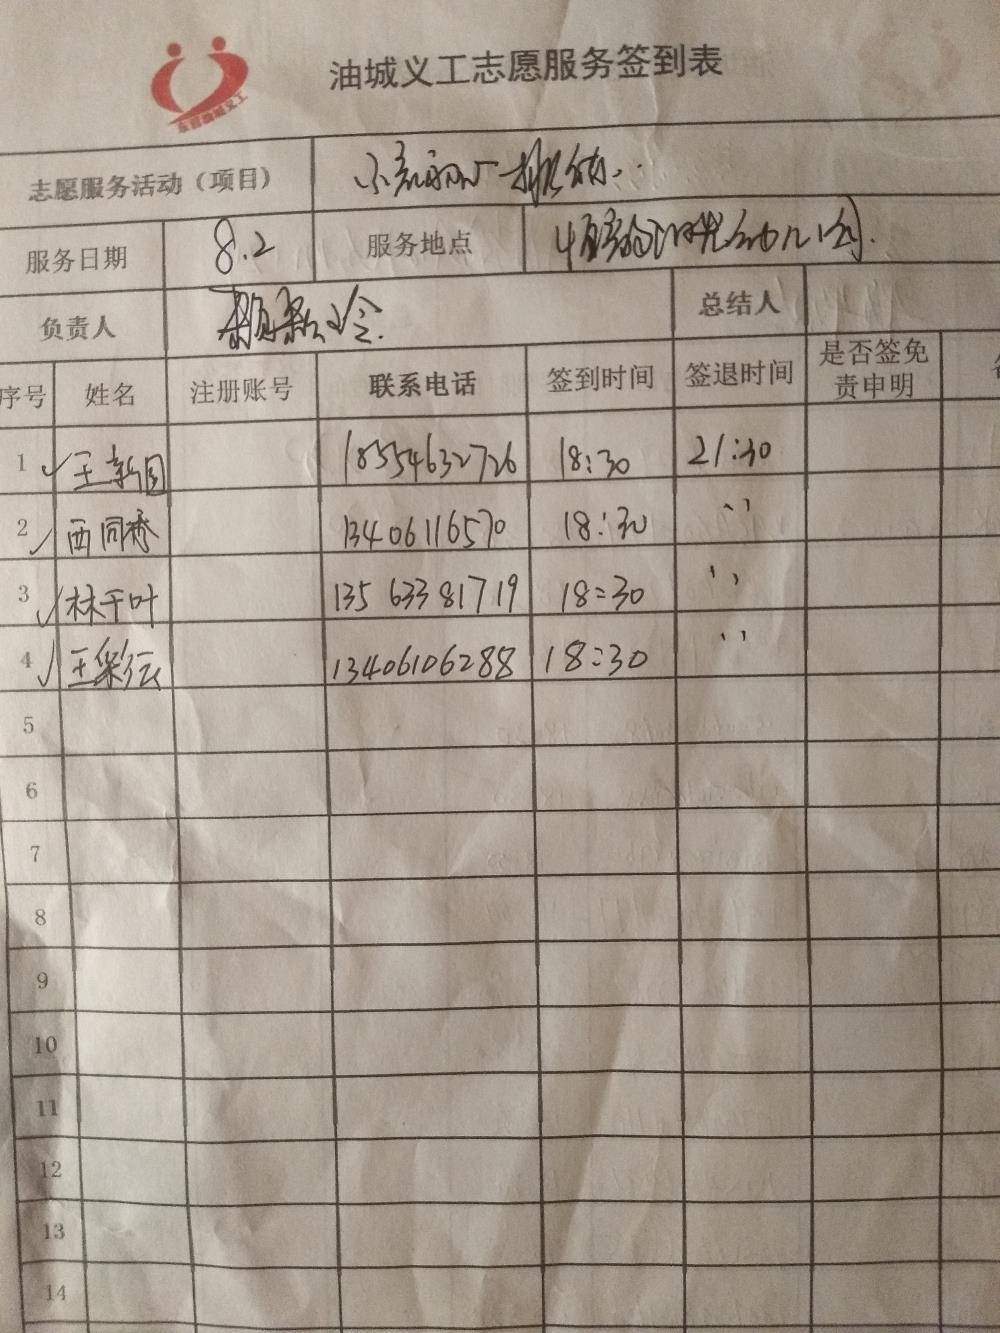 油城义工志愿服务签到表
志愿服务活动（项目）
服务日期 8.2 服务地点
负责人 总结人
序号 姓名 注册账号 联系电话 签到时间 签退时间 是否签免
责申明
1 王新国 18554632726 18:30 21:30
2 西同秀 13406116570 18:30 ''
3 林千叶 13563381719 18:30 ''
4 王彩云 13406106288 18:30 ''
5
6
7
8
9
10
11
12
13
14